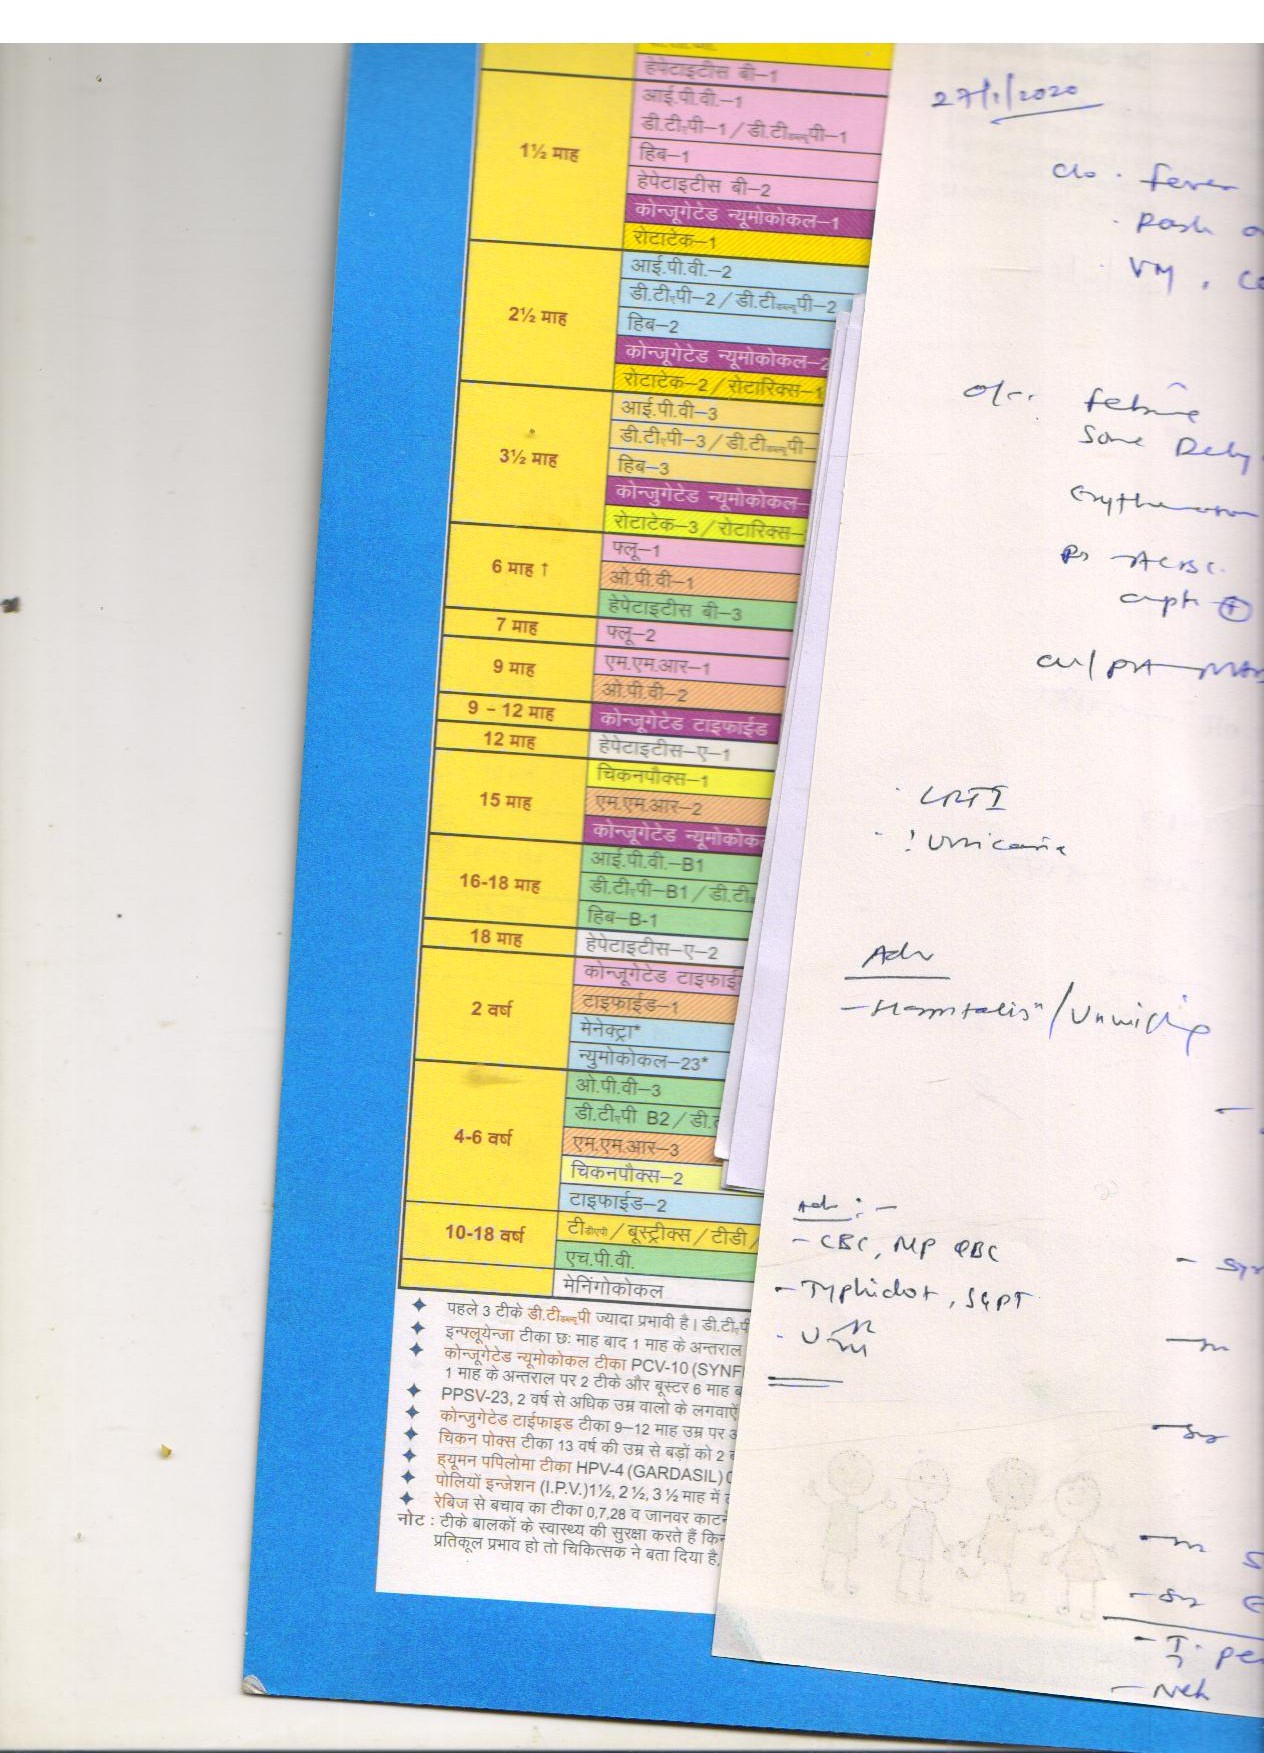 हेपेटाइटीस बी–1
1½ माह
आई.पी.वी.–1
डी.टीएपी–1 / डी.टीडब्ल्यूपी–1
हिब–1
हेपेटाइटीस बी–2
कोन्जूगेटेड न्यूमोकोकल–1
रोटाटेक–1
2½ माह
आई.पी.वी.–2
डी.टीएपी–2 / डी.टीडब्ल्यूपी–2
हिब–2
कोन्जूगेटेड न्यूमोकोकल–2
रोटाटेक–2 / रोटारिक्स–1
3½ माह
आई.पी.वी–3
डी.टीएपी–3 / डी.टीडब्ल्यूपी–
हिब–3
कोन्जुगेटेड न्यूमोकोकल–
रोटाटेक–3 / रोटारिक्स–
6 माह ↑
फ्लू–1
ओ.पी.वी–1
हेपेटाइटीस बी–3
7 माह
फ्लू–2
9 माह
एम.एम.आर–1
ओ.पी.वी–2
9 – 12 माह
कोन्जुगेटेड टाइफाईड
12 माह
हेपेटाइटीस–ए–1
15 माह
चिकनपौक्स–1
एम.एम.आर–2
कोन्जूगेटेड न्यूमोकोक
16-18 माह
आई.पी.वी.–B1
डी.टीएपी–B1 / डी.टी
हिब–B-1
18 माह
हेपेटाइटीस–ए–2
2 वर्ष
कोन्जूगेटेड टाइफाई
टाइफाईड–1
मेनेक्ट्रा*
न्युमोकोकल–23*
4-6 वर्ष
ओ.पी.वी–3
डी.टीएपी B2 / डी.
एम.एम.आर–3
चिकनपौक्स–2
टाइफाईड–2
10-18 वर्ष
टीडीएपी / बूस्ट्रीक्स / टीडी /
एच.पी.वी.
मेनिंगोकोकल
पहले 3 टीके डी.टीडब्ल्यूपी ज्यादा प्रभावी है। डी.टीएपी
इन्फ्लूयेन्जा टीका छः माह बाद 1 माह के अन्तराल
कोन्जूगेटेड न्यूमोकोकल टीका PCV-10 (SYNF
1 माह के अन्तराल पर 2 टीके और बूस्टर 6 माह ब
PPSV-23, 2 वर्ष से अधिक उम्र वालो के लगवाऐं
कोन्जुगेटेड टाईफाइड टीका 9–12 माह उम्र पर
चिकन पोक्स टीका 13 वर्ष की उम्र से बड़ों को 2
ह्यूमन पपिलोमा टीका HPV-4 (GARDASIL)
पोलियों इन्जेशन (I.P.V.) 1½, 2 ½, 3 ½ माह में
रेबिज से बचाव का टीका 0,7,28 व जानवर काट
नोट : टीके बालकों के स्वास्थ्य की सुरक्षा करते हैं किन
प्रतिकूल प्रभाव हो तो चिकित्सक ने बता दिया है,
27/1/2020
c/o . fever
. Rash
. VM ,
O/E: febrile
Some Dehy
Erythema
Rs AEBE
crepts ⊕
CVS/PA
. LRTI
. ? Urticaria
Adv
– Hospitalisn / Unwilling
Adv : –
– CBC, MP QBC
– Typhidot, SGPT
. U
– Neb